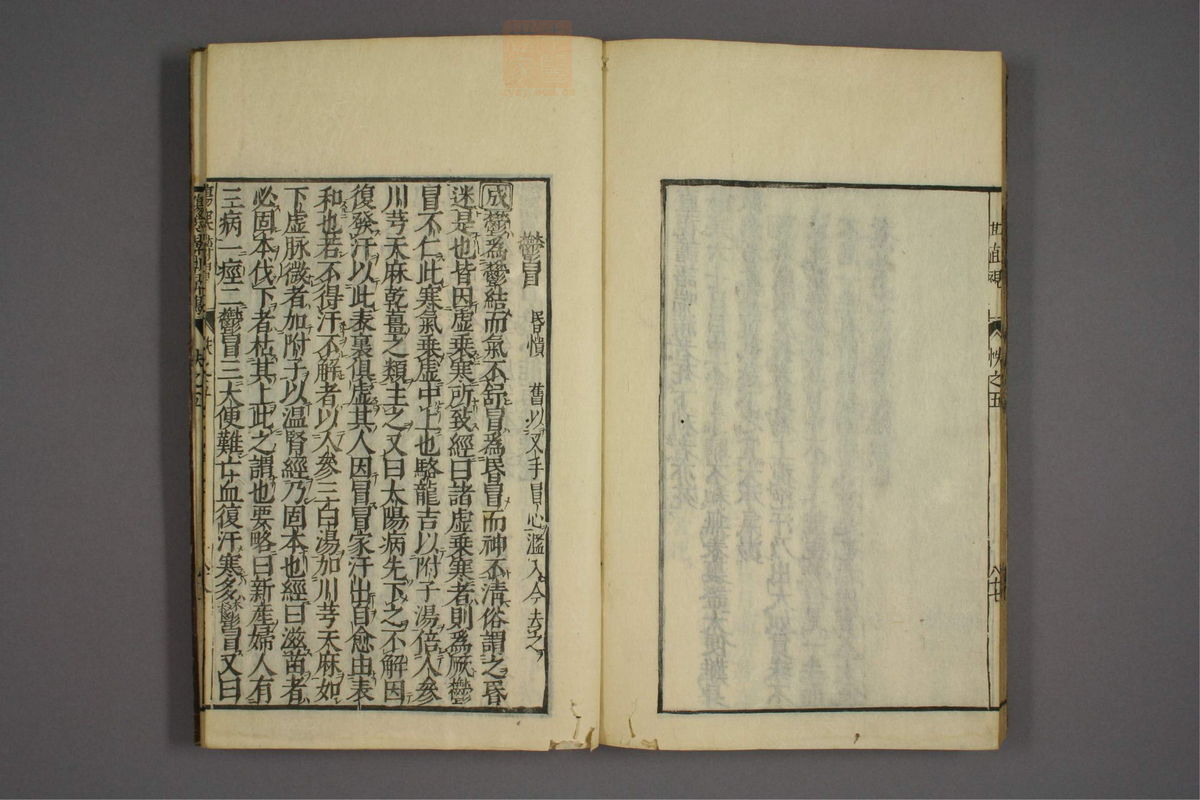 直視
帙之五
鬱冒 昏憒 舊以叉手冒心濫入今去之
成鬱爲鬱結而氣不舒冒爲昏冒而神不清俗謂之昏
迷是也皆因虛乘寒所致經曰諸虛乘寒者則爲厥鬱
冒不仁此寒氣乘虛中上也駱龍吉以附子湯倍人參
川芎天麻乾薑之類主之又曰太陽病先下之不解因
復發汗以此表裏俱虛其人因冒冒家汗出自愈由表
和也若不得汗不解者以人參三白湯加川芎天麻如
下虛脉微者加附子以温腎經乃固本也經曰滋苗者
必固本伐下者枯其上此之謂也要略曰新産婦人有
三病一痙二鬱冒三大便難亡血復汗寒多鬱冒又曰